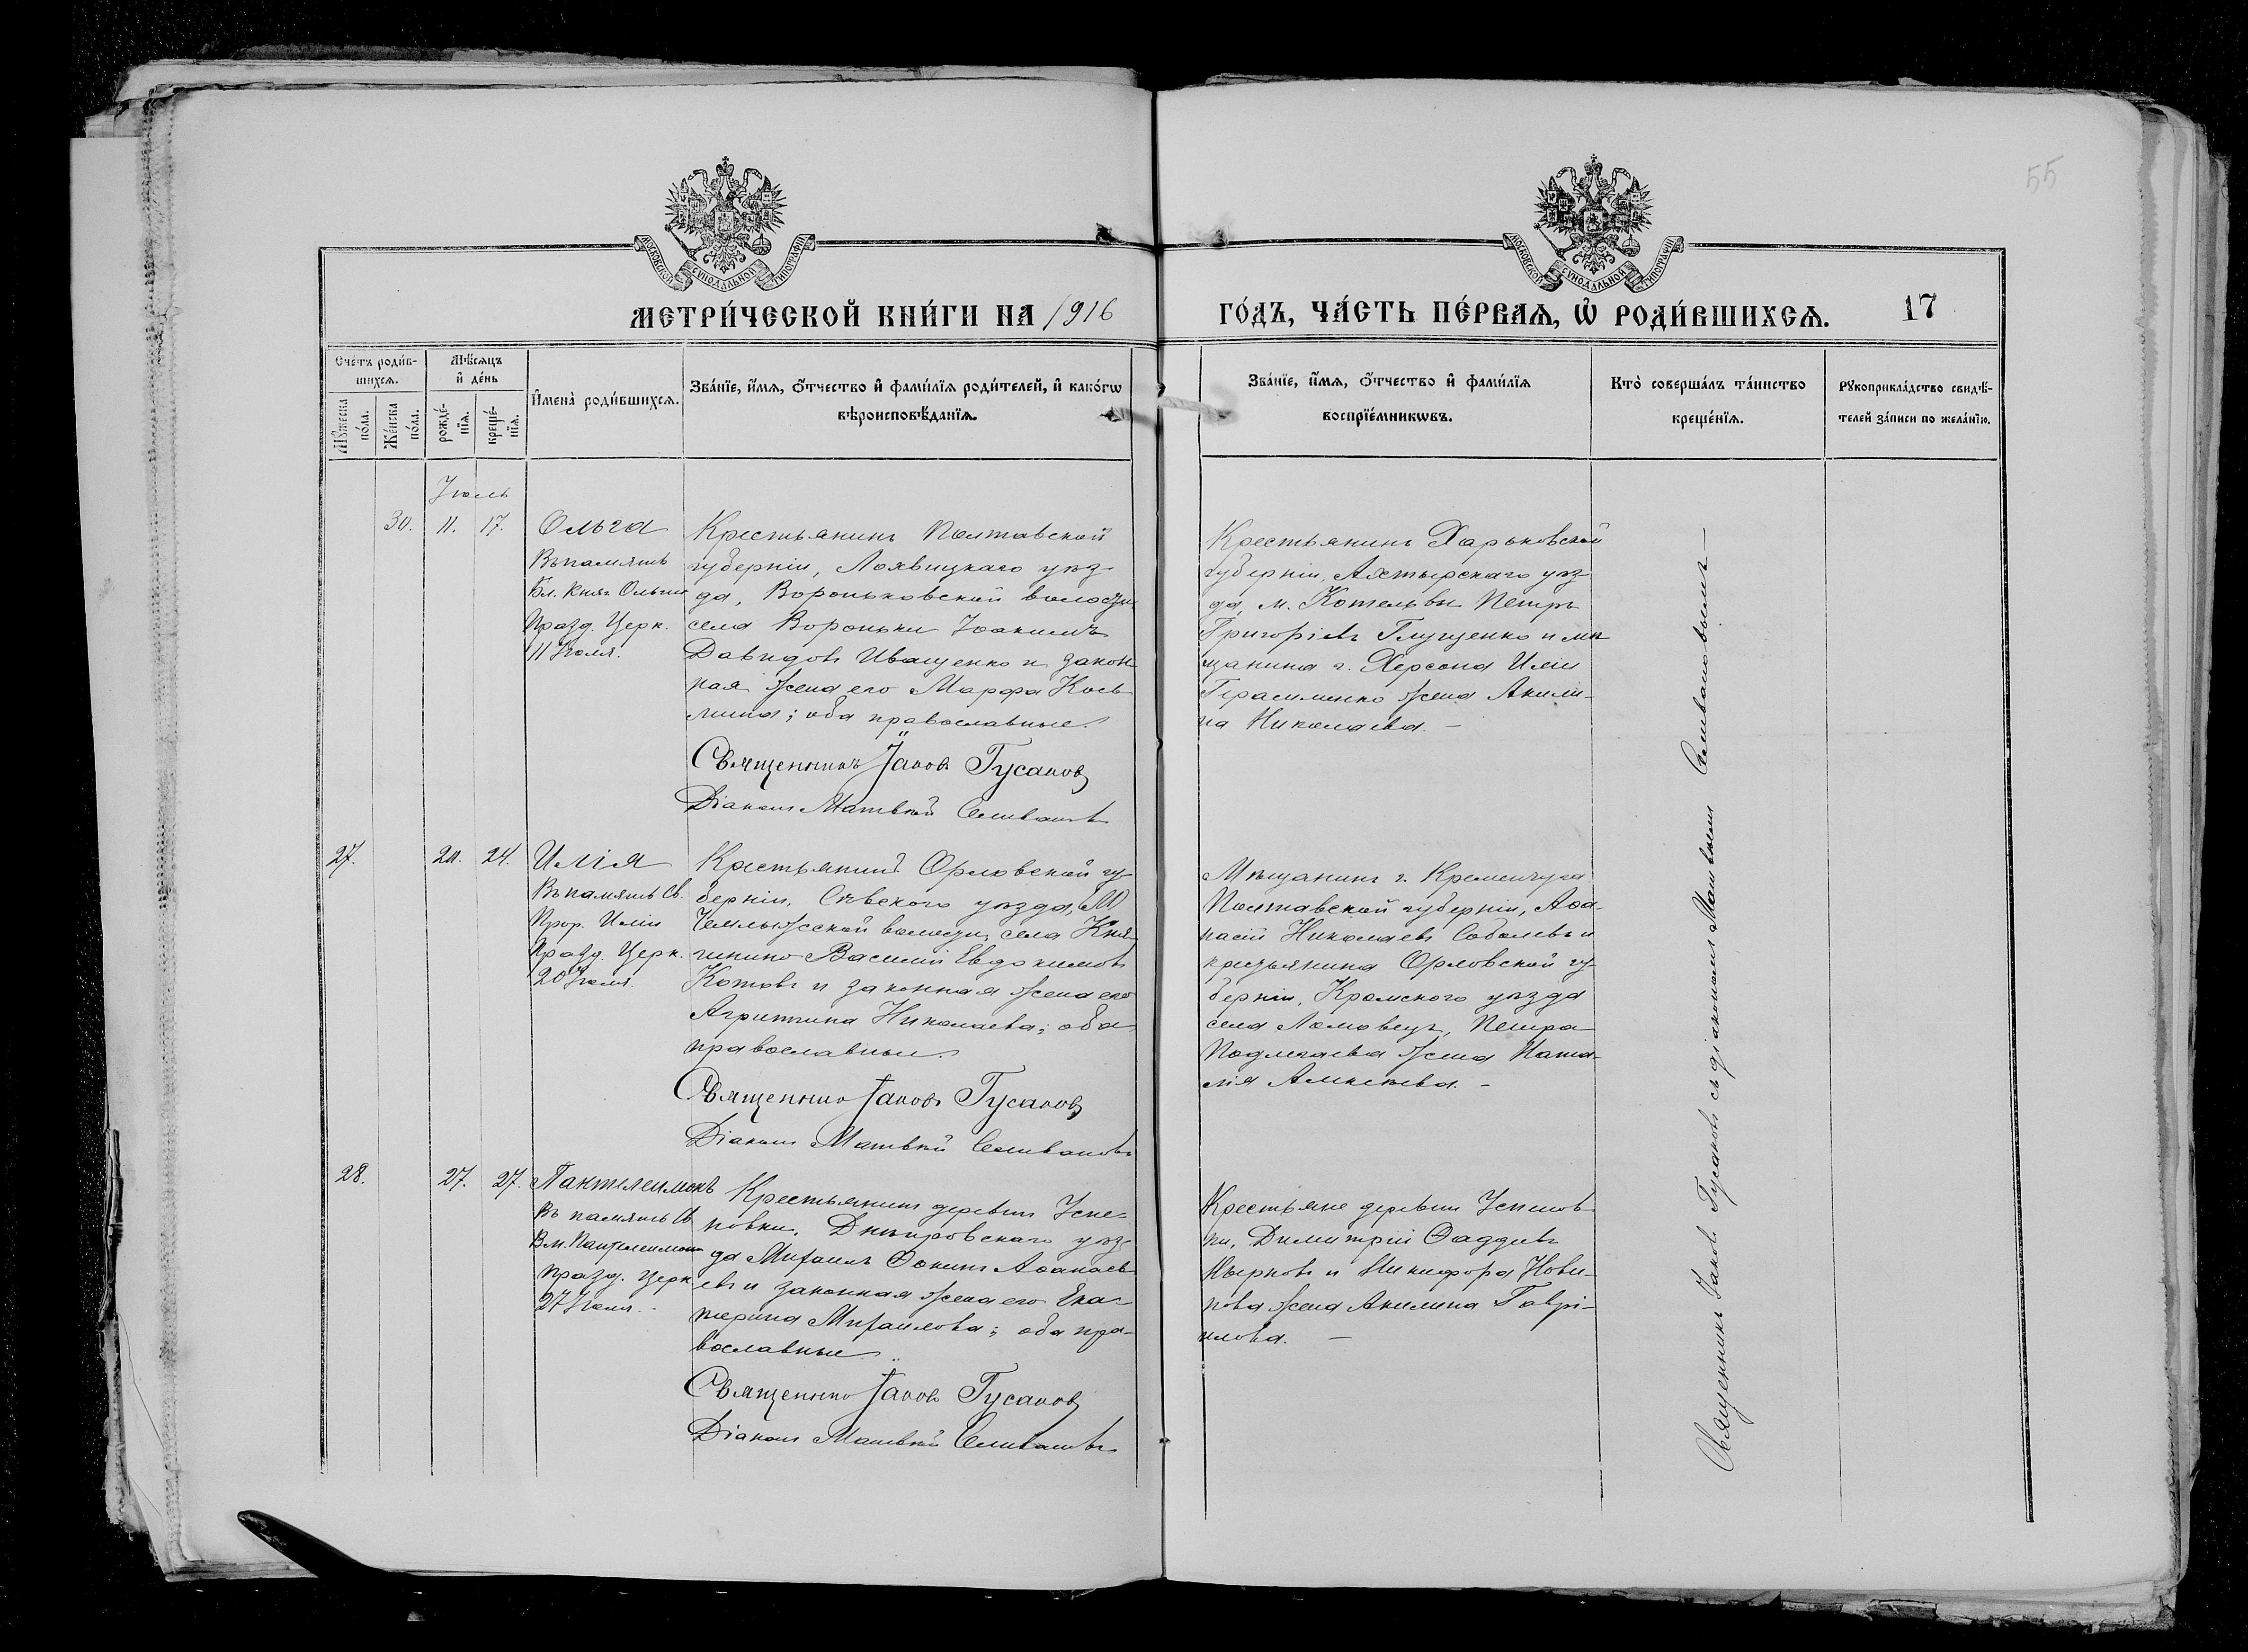 55
МОСКОВСКОЙ СѴНОДАЛЬНОЙ ТИПОГРАФІИ
МОСКОВСКОЙ СѴНОДАЛЬНОЙ ТИПОГРАФІИ
МЕТРИ́ЧЕСКОЙ КНИ́ГИ НА 1916
ГО́ДЪ, ЧА́СТЬ ПЕ́РВАѦ, Ѽ РОДИ́ВШИХСѦ. 17
Сче́тъ роди́в-
шихсѧ.
Мꙋ́жеска по́ла.
Же́нска по́ла.
Мѣ́сѧцъ
и҆ де́нь
рожде́-
нїѧ.
креще́-
нїѧ.
И҆мена̀ роди́вшихсѧ.
Зва́нїе, и҆́мѧ, ѻ҆́тчество и҆ фами́лїѧ роди́телей, и҆ како́гѡ
вѣроисповѣ́данїѧ.
Зва́нїе, и҆́мѧ, ѻ҆́тчество и҆ фами́лїѧ
воспрїе́мникѡвъ.
Кто̀ соверша́лъ та́инство
креще́нїѧ.
Рꙋкоприкла́дство свидѣ́-
телей за́писи по жела́нїю.
Іюль
30. 11. 17.
Ольга
Въ память
Бл. Княг. Ольги
Празд. Церк.
11 Іюля.
Крестьянинъ Полтавской
губерніи, Лохвицкаго уѣз-
да, Вороньковской волости
села Вороньки Іоакимъ
Давидовъ Иващенко и закон-
ная жена его Марфа Кось-
мина; оба православные.
Священникъ Іаковъ Гусаковъ
Діаконъ Матвѣй Селивановъ
Крестьянинъ Харьковской
губерніи, Ахтырскаго уѣз-
да, м. Котельвы Петръ
Григоріевъ Глущенко и мѣ-
щанина г. Херсона Иліи
Герасименко жена Акили-
на Николаева. —
27. 20. 24.
Илія
Въ память Св.
Прор. Иліи
Празд. Церк.
20 Іюля.
Крестьянинъ Орловской гу-
берніи, Сѣвского уѣзда,
волости, села Кня-
гинино Василій Евдокимовъ
Котовъ и законная жена его
Агриппина Николаева; оба
православные.
Священникъ Іаковъ Гусаковъ
Діаконъ Матвѣй Селивановъ
Мѣщанинъ г. Кременчуга
Полтавской губерніи, Аѳа-
насій Николаевъ Соболевъ и
крестьянина Орловской гу-
берніи, Кромского уѣзда
села Ломовецъ, Петра
жена Ната-
лія Алексѣева. —
28. 27. 27.
Пантелеимонъ
Въ память Св.
Вм. Пантелеимона
Празд. Церк.
27 Іюля. —
Крестьянинъ деревни Успе-
новки, Днѣпровскаго уѣз-
да Михаилъ Ѳокинъ Аѳанась-
евъ и законная жена его Ека-
терина Михаилова; оба пра-
вославные.
Священникъ Іаковъ Гусаковъ
Діаконъ Матвѣй Селивановъ
Крестьяне деревни Успенов-
ки, Димитрій Ѳаддѣевъ
и Никифора Нови-
кова жена Акилина Гаврі-
илова. —
Священникъ Іаковъ Гусаковъ съ діакономъ Матвѣемъ Селивановымъ —